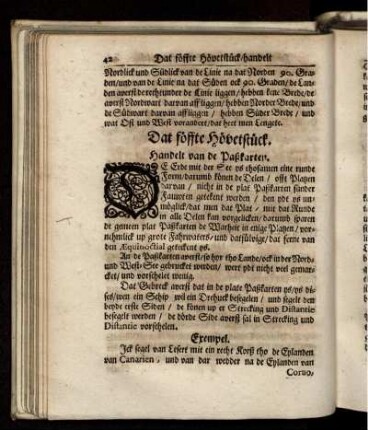 42 Dat föffte Hövetstück/handelt
Nordlick und Südlick van de Linie na dat Norden 90. Gra-
den/und van de Linie na dat Süden ock 90. Graden/de Lan-
den averst de recht under de Linie liggen/hebben kene Brede/de
averst Nordwart darvan aff liggen/hebben Norder Brede/und
de Südwart darvan aff liggen/hebben Süder Brede/und
wat Ost und West verandert/dat heet men Lengete.
Dat föffte Hövetstück.
Handelt van de Paßkarten.
DE Erde mit der See ys thosamen eine runde
Form/darumb können de Delen/offt Platzen
darvan/nicht in de plat Paßkarten sunder
Fauten getekent werden/den ydt ys un-
möglick/dat men dat Plat, mit dat Runde
in alle Delen kan vorgelicken/darumb sparen
de gemeen plat Paßkarten de Warheit in einige Platzen/vor-
nehmlick up grote Fahrwaters/und datsülvige/dat ferne van
den Æquinoctial getekent ys.
An de Paßkarten averst/so hyr tho Lande/ock in der Nord-
und West-See gebrucket werden/wert ydt nicht veel gemar-
cket/und vorschelet wenig.
Dat Gebreck averst dat in de plate Paßkarten ys/ys di-
ses/wen ein Schip wil ein Drehuck beseglen/und segelt den
beyde erste Siden/de können up er Strecking und Distantie
besegelt werden/de dörde Side averst sal in Strecking und
Distantie vorschelen.
Exempel.
Ick segel van Lesert mit ein recht Korß tho de Eylanden
van Canarien, und van dar wedder na de Eylanden van
Corvo,